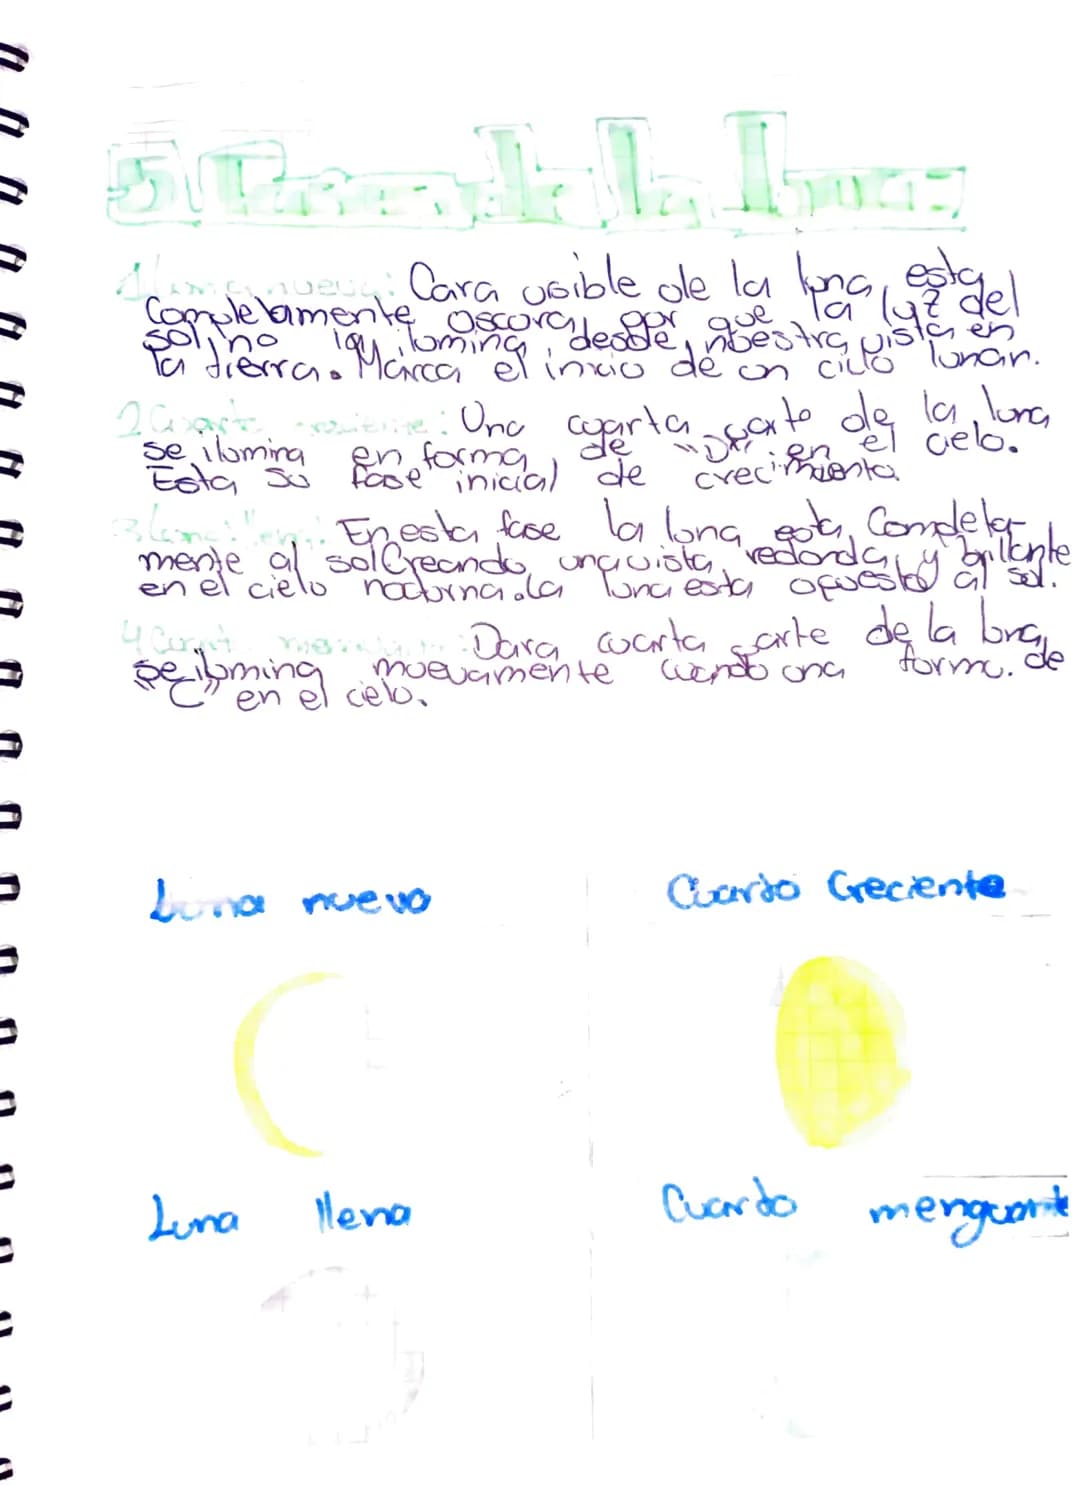 5 Fases de la luna
1 luna nueva: Cara visible de la luna esta
Completamente oscora, por que la luz del
sol, no la ilumina desde nuestra vista en
la tierra. Marca el inicio de un ciclo lunar.
2 Cuarto creciente: Una cuarta parte de la luna
se ilumina en forma de "D" en el cielo.
Esta su fase inicial de crecimiento
3 luna llena: En esta fase la luna esta Completa-
mente al sol Creando una vista redonda y brillante
en el cielo nocturna. La luna esta opuesto al sol.
4 Cuart : Dara cuarta parte de la luna
se ilumina nuevamente cuando una forma. de
"C" en el cielo.
Luna nueva
Cuarto Creciente
Luna llena
Cuarto menguante